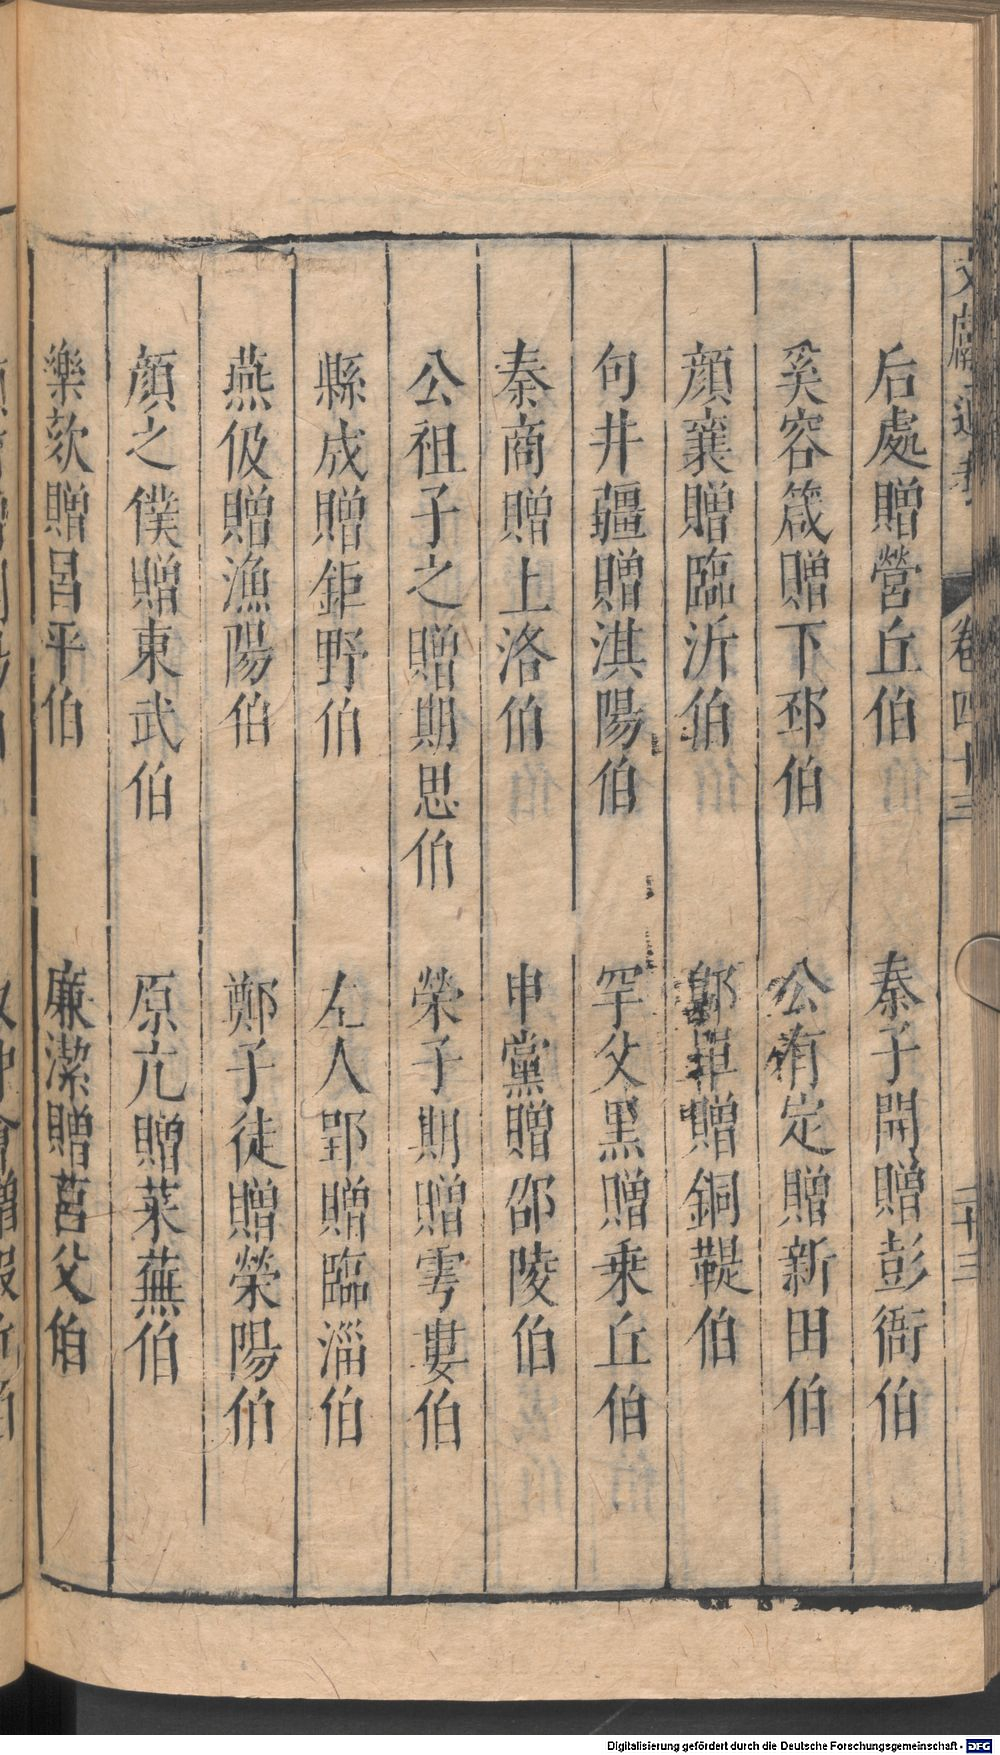 文獻通考 卷四十三 二十三
后處贈營丘伯 秦子開贈彭衙伯
奚容箴贈下邳伯 公有定贈新田伯
顔襄贈臨沂伯 鄡單贈銅鞮伯
句井疆贈淇陽伯 罕父黒贈乗丘伯
秦商贈上洛伯 申黨贈邵陵伯
公祖子之贈期思伯 榮子期贈雩婁伯
縣成贈鉅野伯 左人郢贈臨淄伯
燕伋贈漁陽伯 鄭子徒贈榮陽伯
顔之僕贈東武伯 原亢贈萊蕪伯
樂欬贈昌平伯 廉潔贈莒父伯
Digitalisierung gefördert durch die Deutsche Forschungsgemeinschaft - DFG